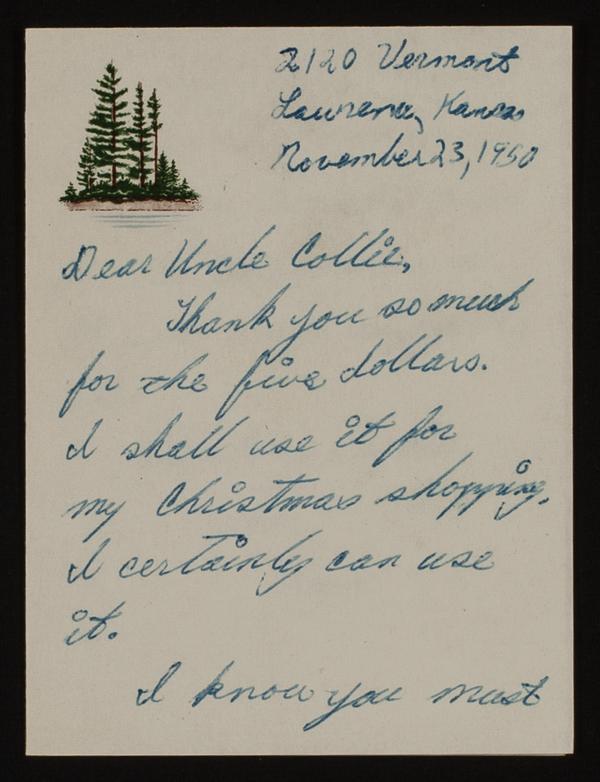 2120 Vermont
Lawrence, Kansas
November 23, 1950
Dear Uncle Collie,
Thank you so much
for the five dollars.
I shall use it for
my Christmas shopping.
I certainly can use
it.
I know you must